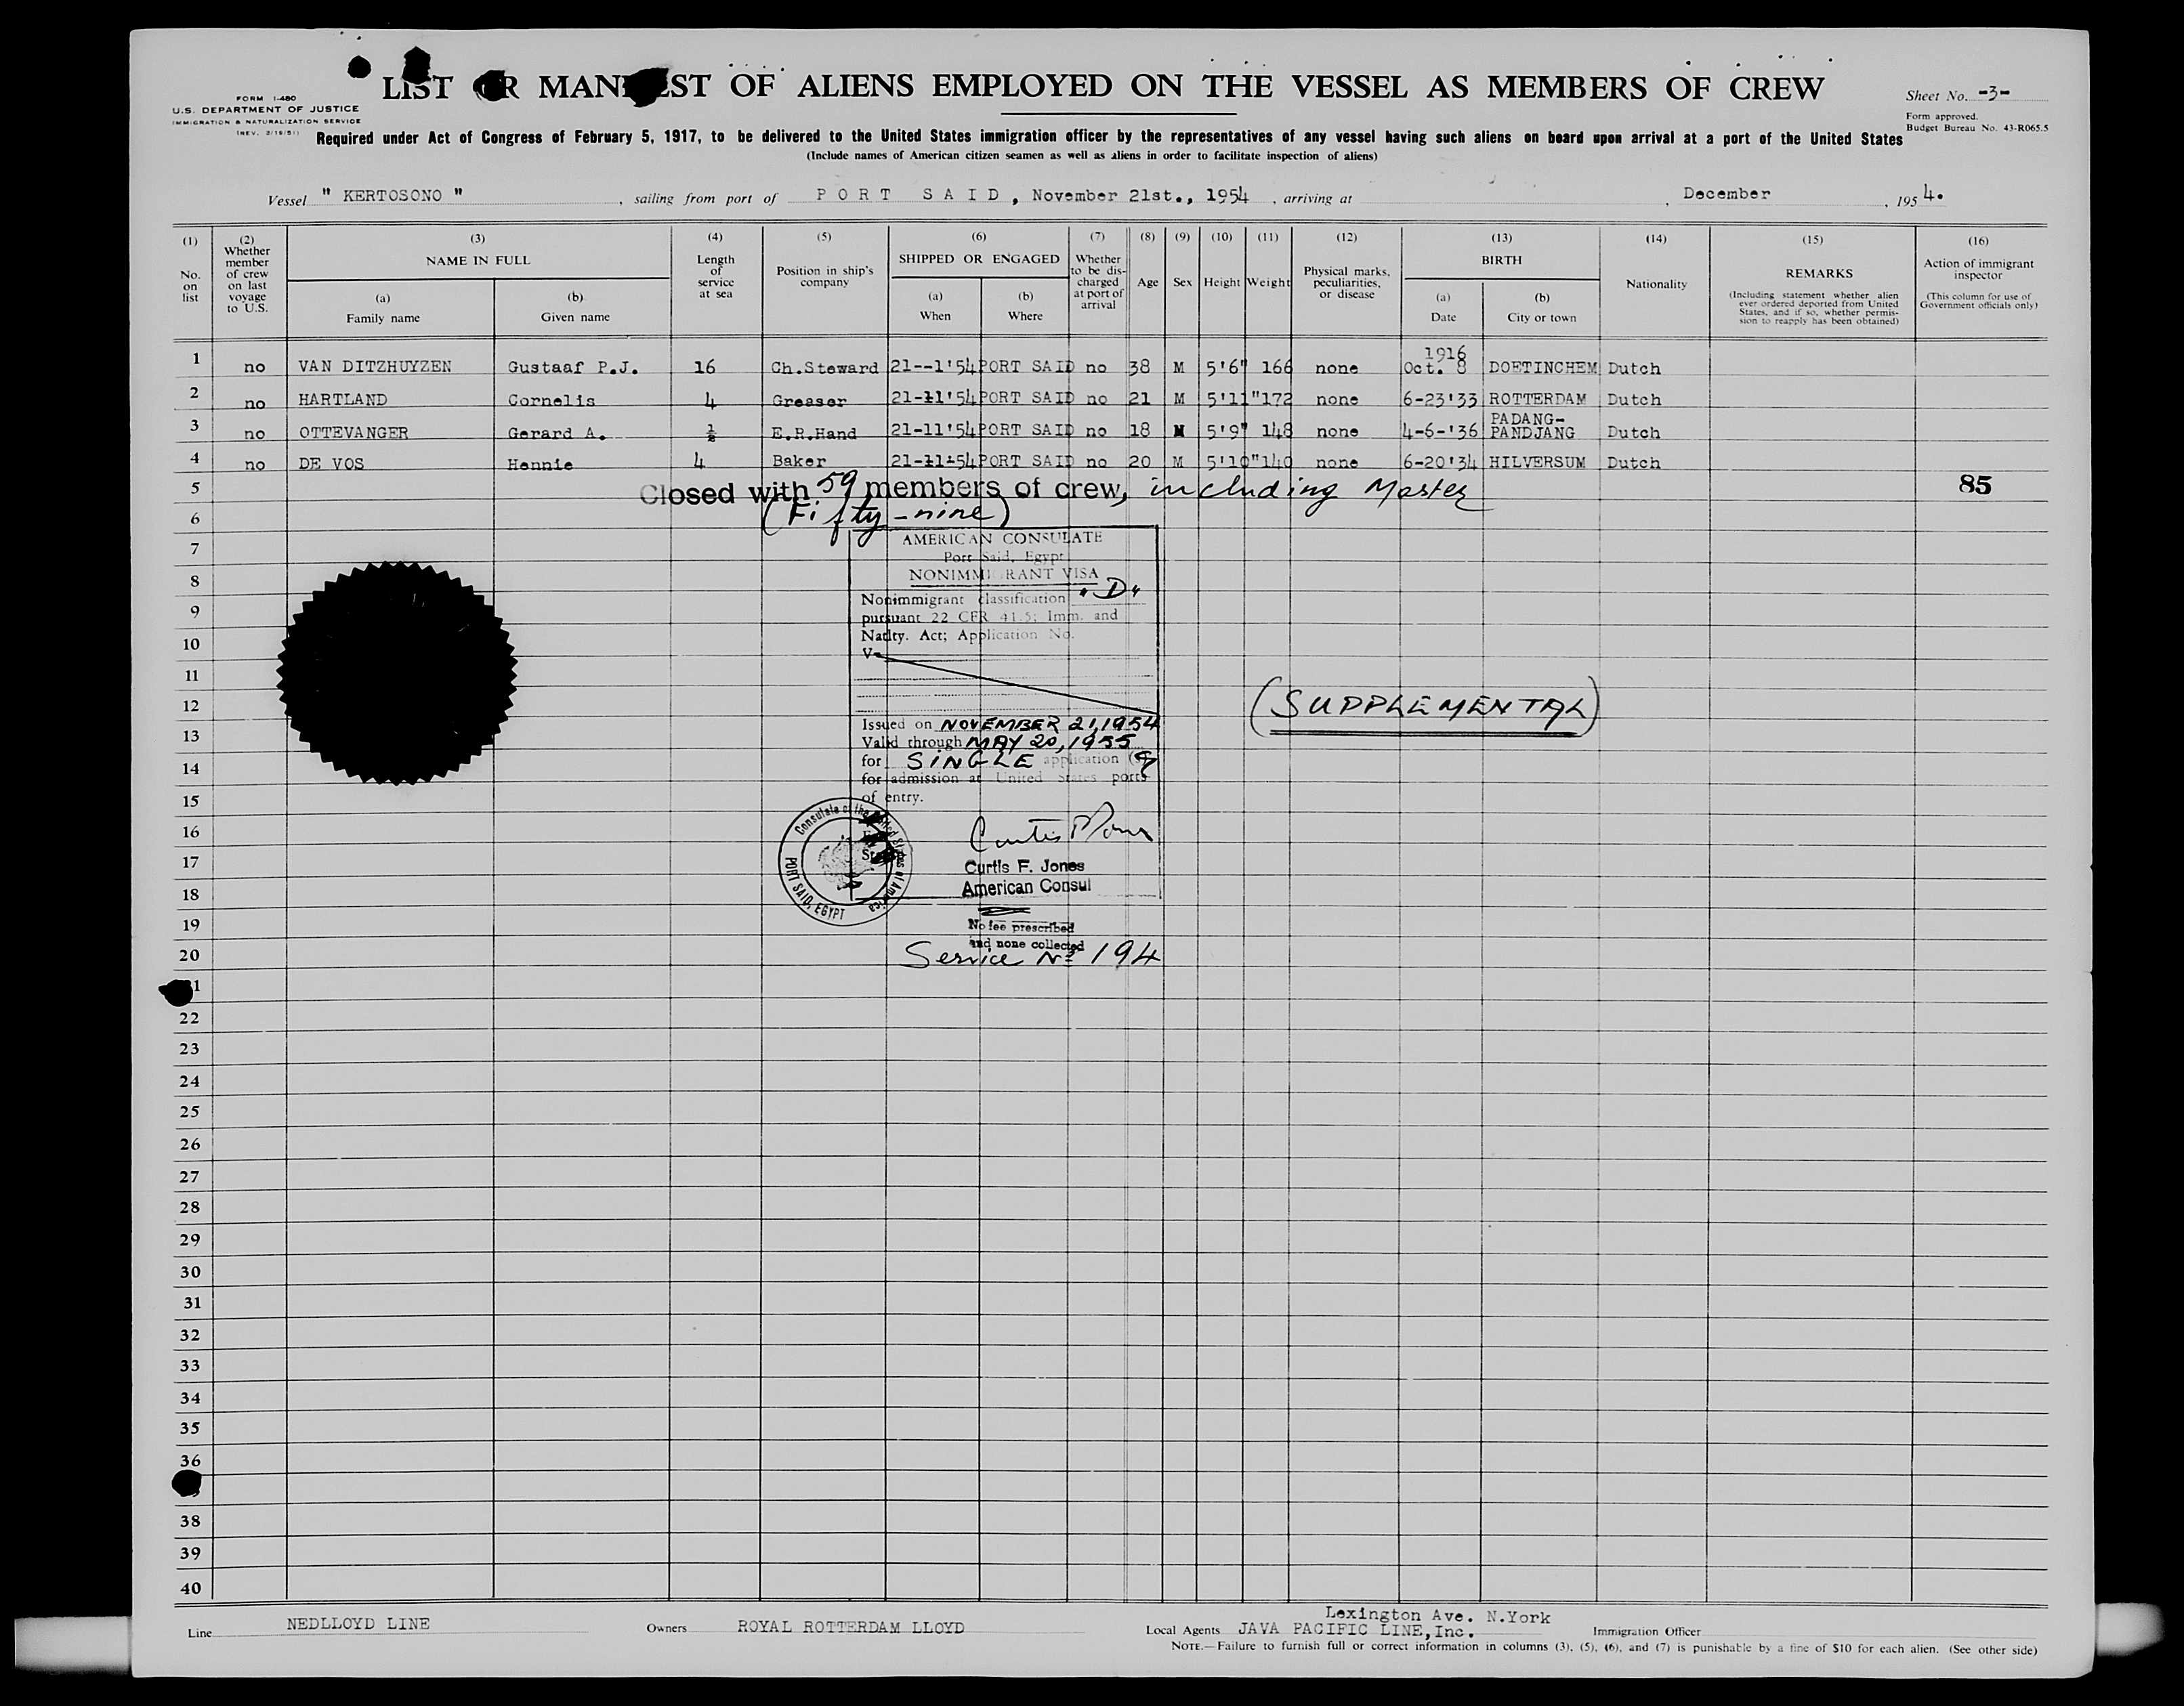 FORM I-480
U.S. DEPARTMENT OF JUSTICE
IMMIGRATION & NATURALIZATION SERVICE
(REV. 2/16/51)
LIST OR MANIFEST OF ALIENS EMPLOYED ON THE VESSEL AS MEMBERS OF CREW
Sheet No. -3-
Form approved.
Budget Bureau No. 43-R065.5
Required under Act of Congress of February 5, 1917, to be delivered to the United States immigration officer by the representatives of any vessel having such aliens on board upon arrival at a port of the United States
(Include names of American citizen seamen as well as aliens in order to facilitate inspection of aliens)
Vessel " KERTOSONO " , sailing from port of PORT SAID, November 21st., 1954 , arriving at , December , 195 4.
(1) No. on list
(2) Whether member of crew on last voyage to U.S.
(3) NAME IN FULL
(a) Family name
(b) Given name
(4) Length of service at sea
(5) Position in ship's company
(6) SHIPPED OR ENGAGED
(a) When
(b) Where
(7) Whether to be discharged at port of arrival
(8) Age
(9) Sex
(10) Height
(11) Weight
(12) Physical marks, peculiarities, or disease
(13) BIRTH
(a) Date
(b) City or town
(14) Nationality
(15) REMARKS
(Including statement whether alien ever ordered deported from United States, and if so, whether permission to reapply has been obtained)
(16) Action of immigrant inspector
(This column for use of Government officials only)
1 no VAN DITZHUYZEN Gustaaf P.J. 16 Ch.Steward 21--1'54 PORT SAID no 38 M 5'6" 166 none 1916 Oct. 8 DOETINCHEM Dutch
2 no HARTLAND Cornelis 4 Greaser 21-11'54 PORT SAID no 21 M 5'11" 172 none 6-23'33 ROTTERDAM Dutch
3 no OTTEVANGER Gerard A. ½ E.R.Hand 21-11'54 PORT SAID no 18 M 5'9" 148 none 4-6-'36 PADANG-PANDJANG Dutch
4 no DE VOS Hennie 4 Baker 21-11-54 PORT SAID no 20 M 5'10" 140 none 6-20'34 HILVERSUM Dutch
5 Closed with 59 members of crew, including Master 85
6 (Fifty-nine)
7 AMERICAN CONSULATE
Port Said, Egypt
8 NONIMMIGRANT VISA
9 Nonimmigrant classification "D"
pursuant 22 CFR 41.5; Imm. and
10 Natlty. Act; Application No.
V-
11
12 (SUPPLEMENTAL)
Issued on NOVEMBER 21, 1954
13 Valid through MAY 20, 1955
14 for SINGLE application (s)
for admission at United States ports
15 of entry.
16 Consulate of the United States of America
PORT SAID, EGYPT
17 Curtis F. Jones
18 American Consul
19 No fee prescribed
20 and none collected
Service No 194
21
22
23
24
25
26
27
28
29
30
31
32
33
34
35
36
38
39
40
Line NEDLLOYD LINE Owners ROYAL ROTTERDAM LLOYD Local Agents Lexington Ave. N.York JAVA PACIFIC LINE,Inc. Immigration Officer
NOTE.—Failure to furnish full or correct information in columns (3), (5), (6), and (7) is punishable by a fine of $10 for each alien. (See other side)